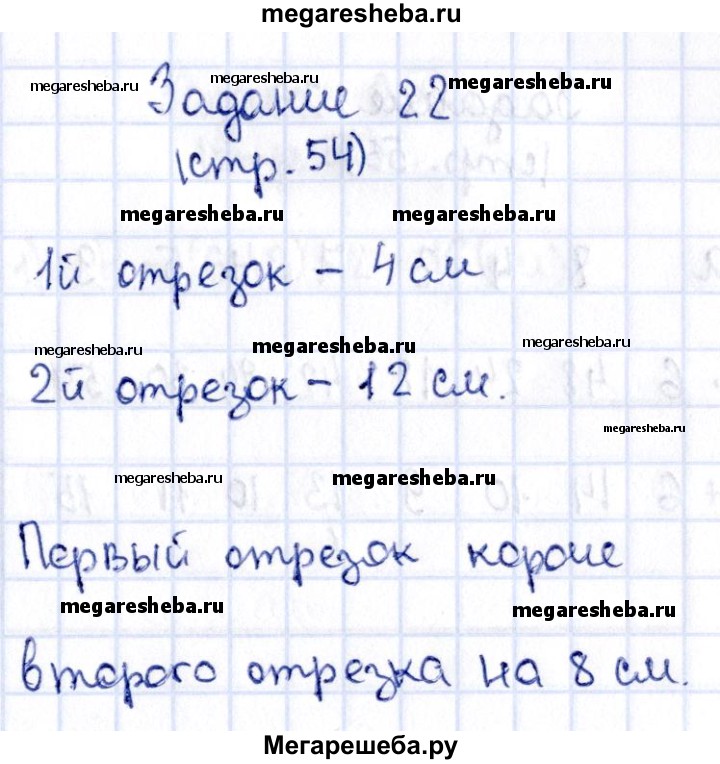 megaresheba.ru
megaresheba.ru megaresheba.ru megaresheba.ru
Задание 22
(стр. 54)
megaresheba.ru megaresheba.ru
1й отрезок – 4 см
megaresheba.ru megaresheba.ru megaresheba.ru
2й отрезок – 12 см.
megaresheba.ru
megaresheba.ru megaresheba.ru
Первый отрезок короче
megaresheba.ru megaresheba.ru
второго отрезка на 8 см.
Мегарешеба.ру